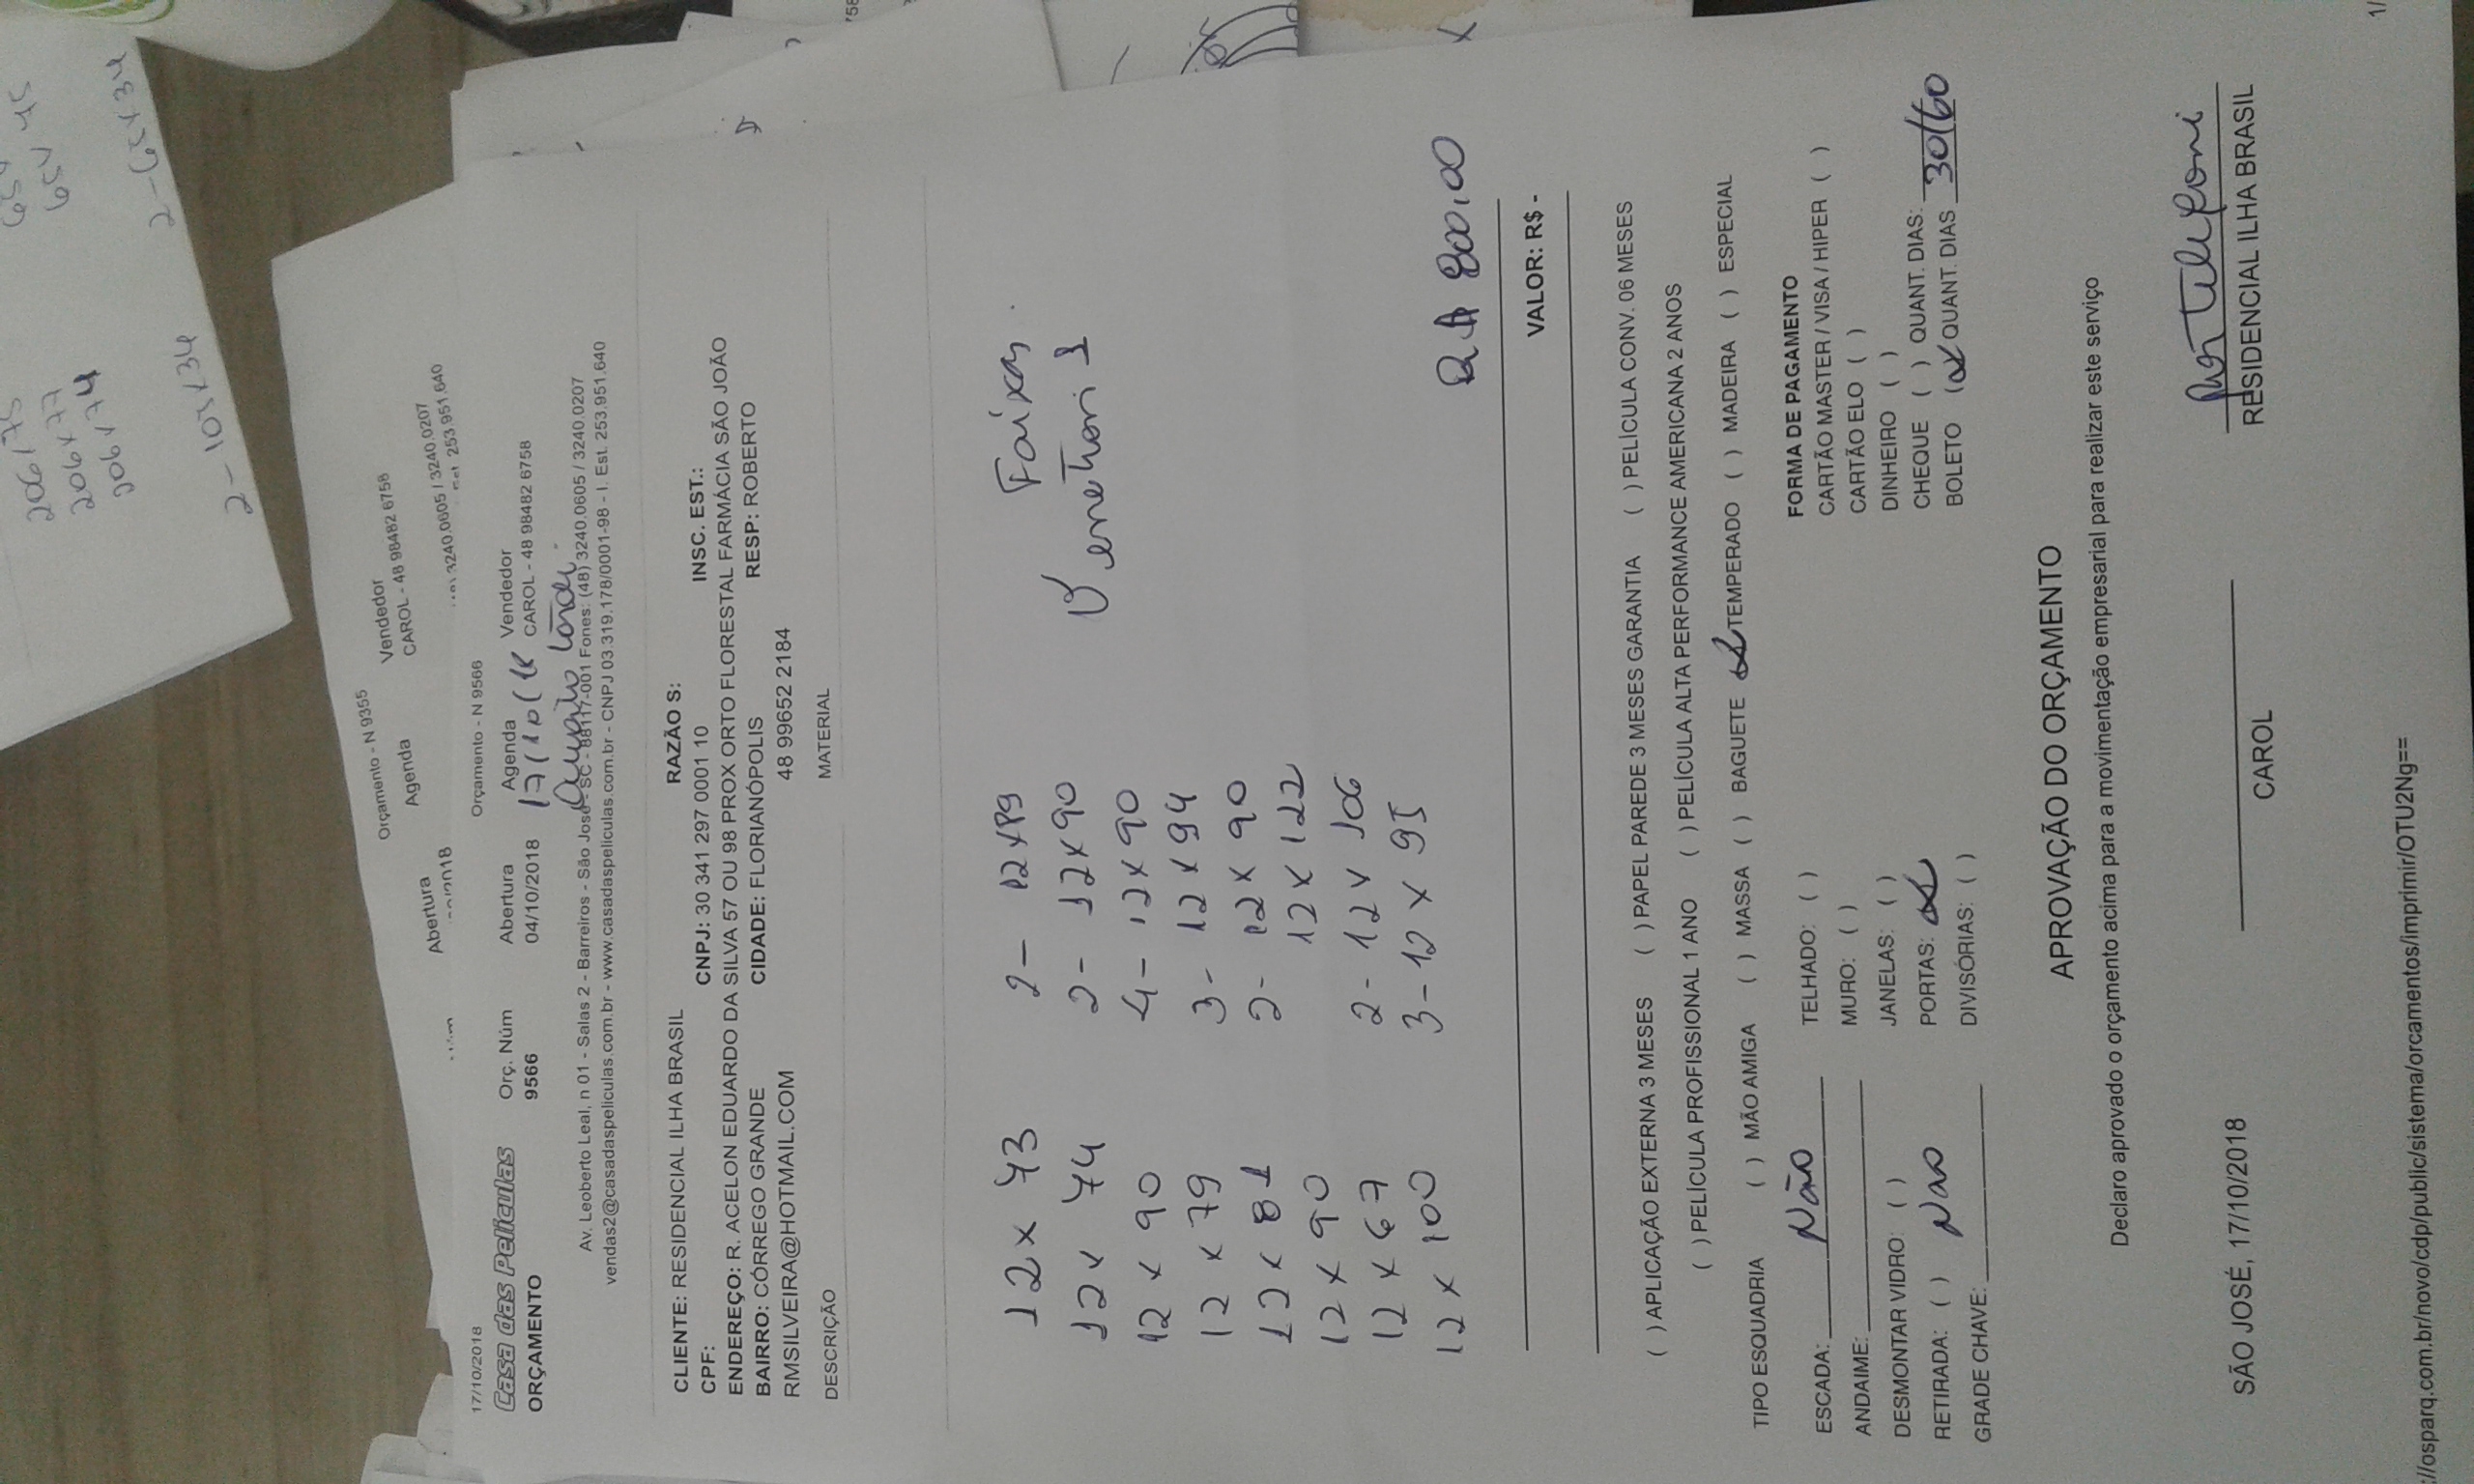 206 x 77
206 x 74
2 - 65 x 34
2 - 107 x 34
Orçamento - N 9355
Abertura Agenda Vendedor
CAROL - 48 98482 6758
3240.0605 / 3240.0207
253.951.640
17/10/2018 Orçamento - N 9566
Casa das Películas Orç. Núm Abertura Agenda Vendedor
ORÇAMENTO 9566 04/10/2018 17/10/18 CAROL - 48 98482 6758
Av. Leoberto Leal, n 01 - Salas 2 - Barreiros - São José - SC - 88117-001 Fones: (48) 3240.0605 / 3240.0207
vendas2@casadaspeliculas.com.br - www.casadaspeliculas.com.br - CNPJ 03.319.178/0001-98 - I. Est. 253.951.640
CLIENTE: RESIDENCIAL ILHA BRASIL RAZÃO S:
CPF: CNPJ: 30 341 297 0001 10 INSC. EST.:
ENDEREÇO: R. ACELON EDUARDO DA SILVA 57 OU 98 PROX ORTO FLORESTAL FARMÁCIA SÃO JOÃO
BAIRRO: CÓRREGO GRANDE CIDADE: FLORIANÓPOLIS RESP: ROBERTO
RMSILVEIRA@HOTMAIL.COM 48 99652 2184
DESCRIÇÃO MATERIAL
12 x 73 2 - 12 x 89 Faixas
12 x 74 2 - 12 x 90
12 x 90 4 - 12 x 90
12 x 79 3 - 12 x 94
12 x 81 2 - 12 x 90
12 x 90 12 x 122
12 x 67 2 - 12 x 106
12 x 100 3 - 12 x 95
800,00
VALOR: R$ -
( ) APLICAÇÃO EXTERNA 3 MESES ( ) PAPEL PAREDE 3 MESES GARANTIA ( ) PELÍCULA CONV. 06 MESES
( ) PELÍCULA PROFISSIONAL 1 ANO ( ) PELÍCULA ALTA PERFORMANCE AMERICANA 2 ANOS
TIPO ESQUADRIA ( ) MÃO AMIGA ( ) MASSA ( ) BAGUETE (X) TEMPERADO ( ) MADEIRA ( ) ESPECIAL
ESCADA: Não TELHADO: ( ) FORMA DE PAGAMENTO
ANDAIME: MURO: ( ) CARTÃO MASTER / VISA / HIPER ( )
DESMONTAR VIDRO: ( ) JANELAS: ( ) CARTÃO ELO ( )
RETIRADA: ( ) Não PORTAS: (X) DINHEIRO ( )
GRADE CHAVE: DIVISÓRIAS: ( ) CHEQUE ( ) QUANT. DIAS:
BOLETO (X) QUANT. DIAS 30/60
APROVAÇÃO DO ORÇAMENTO
Declaro aprovado o orçamento acima para a movimentação empresarial para realizar este serviço
SÃO JOSÉ, 17/10/2018 CAROL RESIDENCIAL ILHA BRASIL
://osparq.com.br/novo/cdp/public/sistema/orcamentos/imprimir/OTU2Ng== 1/